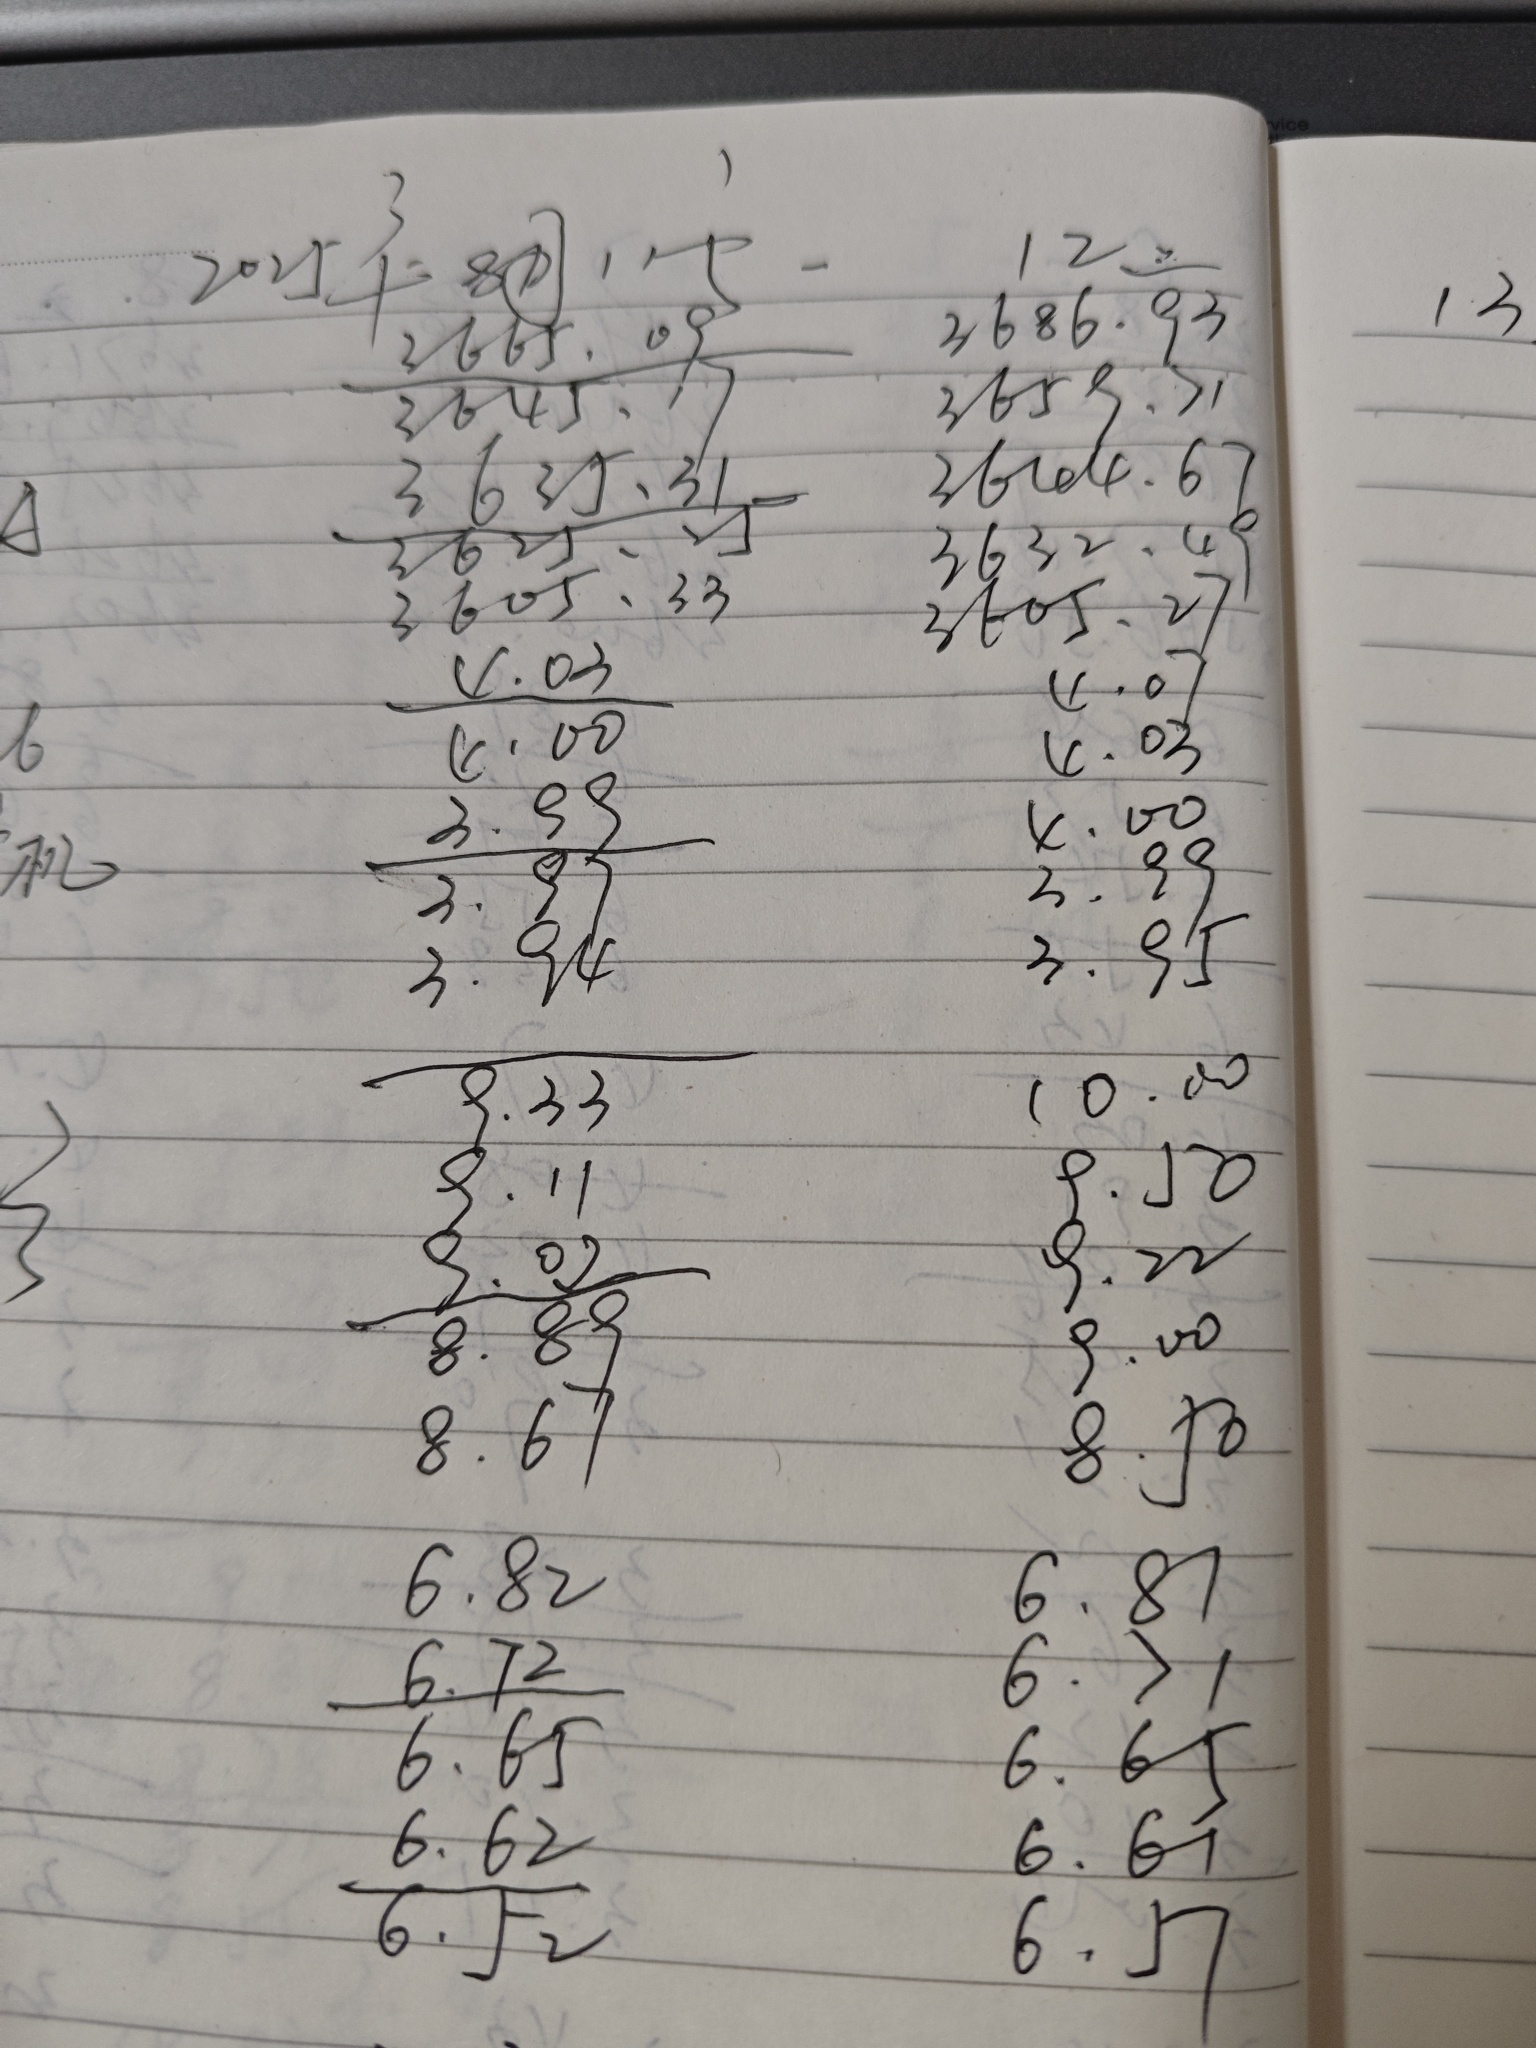 2025年 8月 11 一 12 二
3665.09 3686.93
3645.17 3659.71
3635.31 3644.67
3625.25 3632.49
3605.33 3605.27
4.03 4.07
4.00 4.03
3.99 4.00
3.97 3.99
3.94 3.95
9.33 10.00
9.11 9.50
9.0 9.22
8.89 9.00
8.67 8.50
6.82 6.87
6.72 6.71
6.65 6.65
6.62 6.61
6.52 6.57
6
机
13